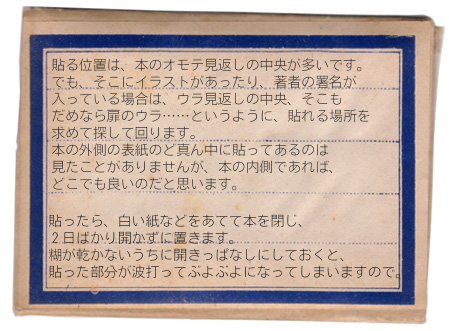 貼る位置は、本のオモテ見返しの中央が多いです。
でも、そこにイラストがあったり、著者の署名が
入っている場合は、ウラ見返しの中央、そこも
だめなら扉のウラ……というように、貼れる場所を
求めて探して回ります。
本の外側の表紙のど真ん中に貼ってあるのは
見たことがありませんが、本の内側であれば、
どこでも良いのだと思います。
貼ったら、白い紙などをあてて本を閉じ、
２日ばかり開かずに置きます。
糊が乾かないうちに開きっぱなしにしておくと、
貼った部分が波打ってぶよぶよになってしまいますので。